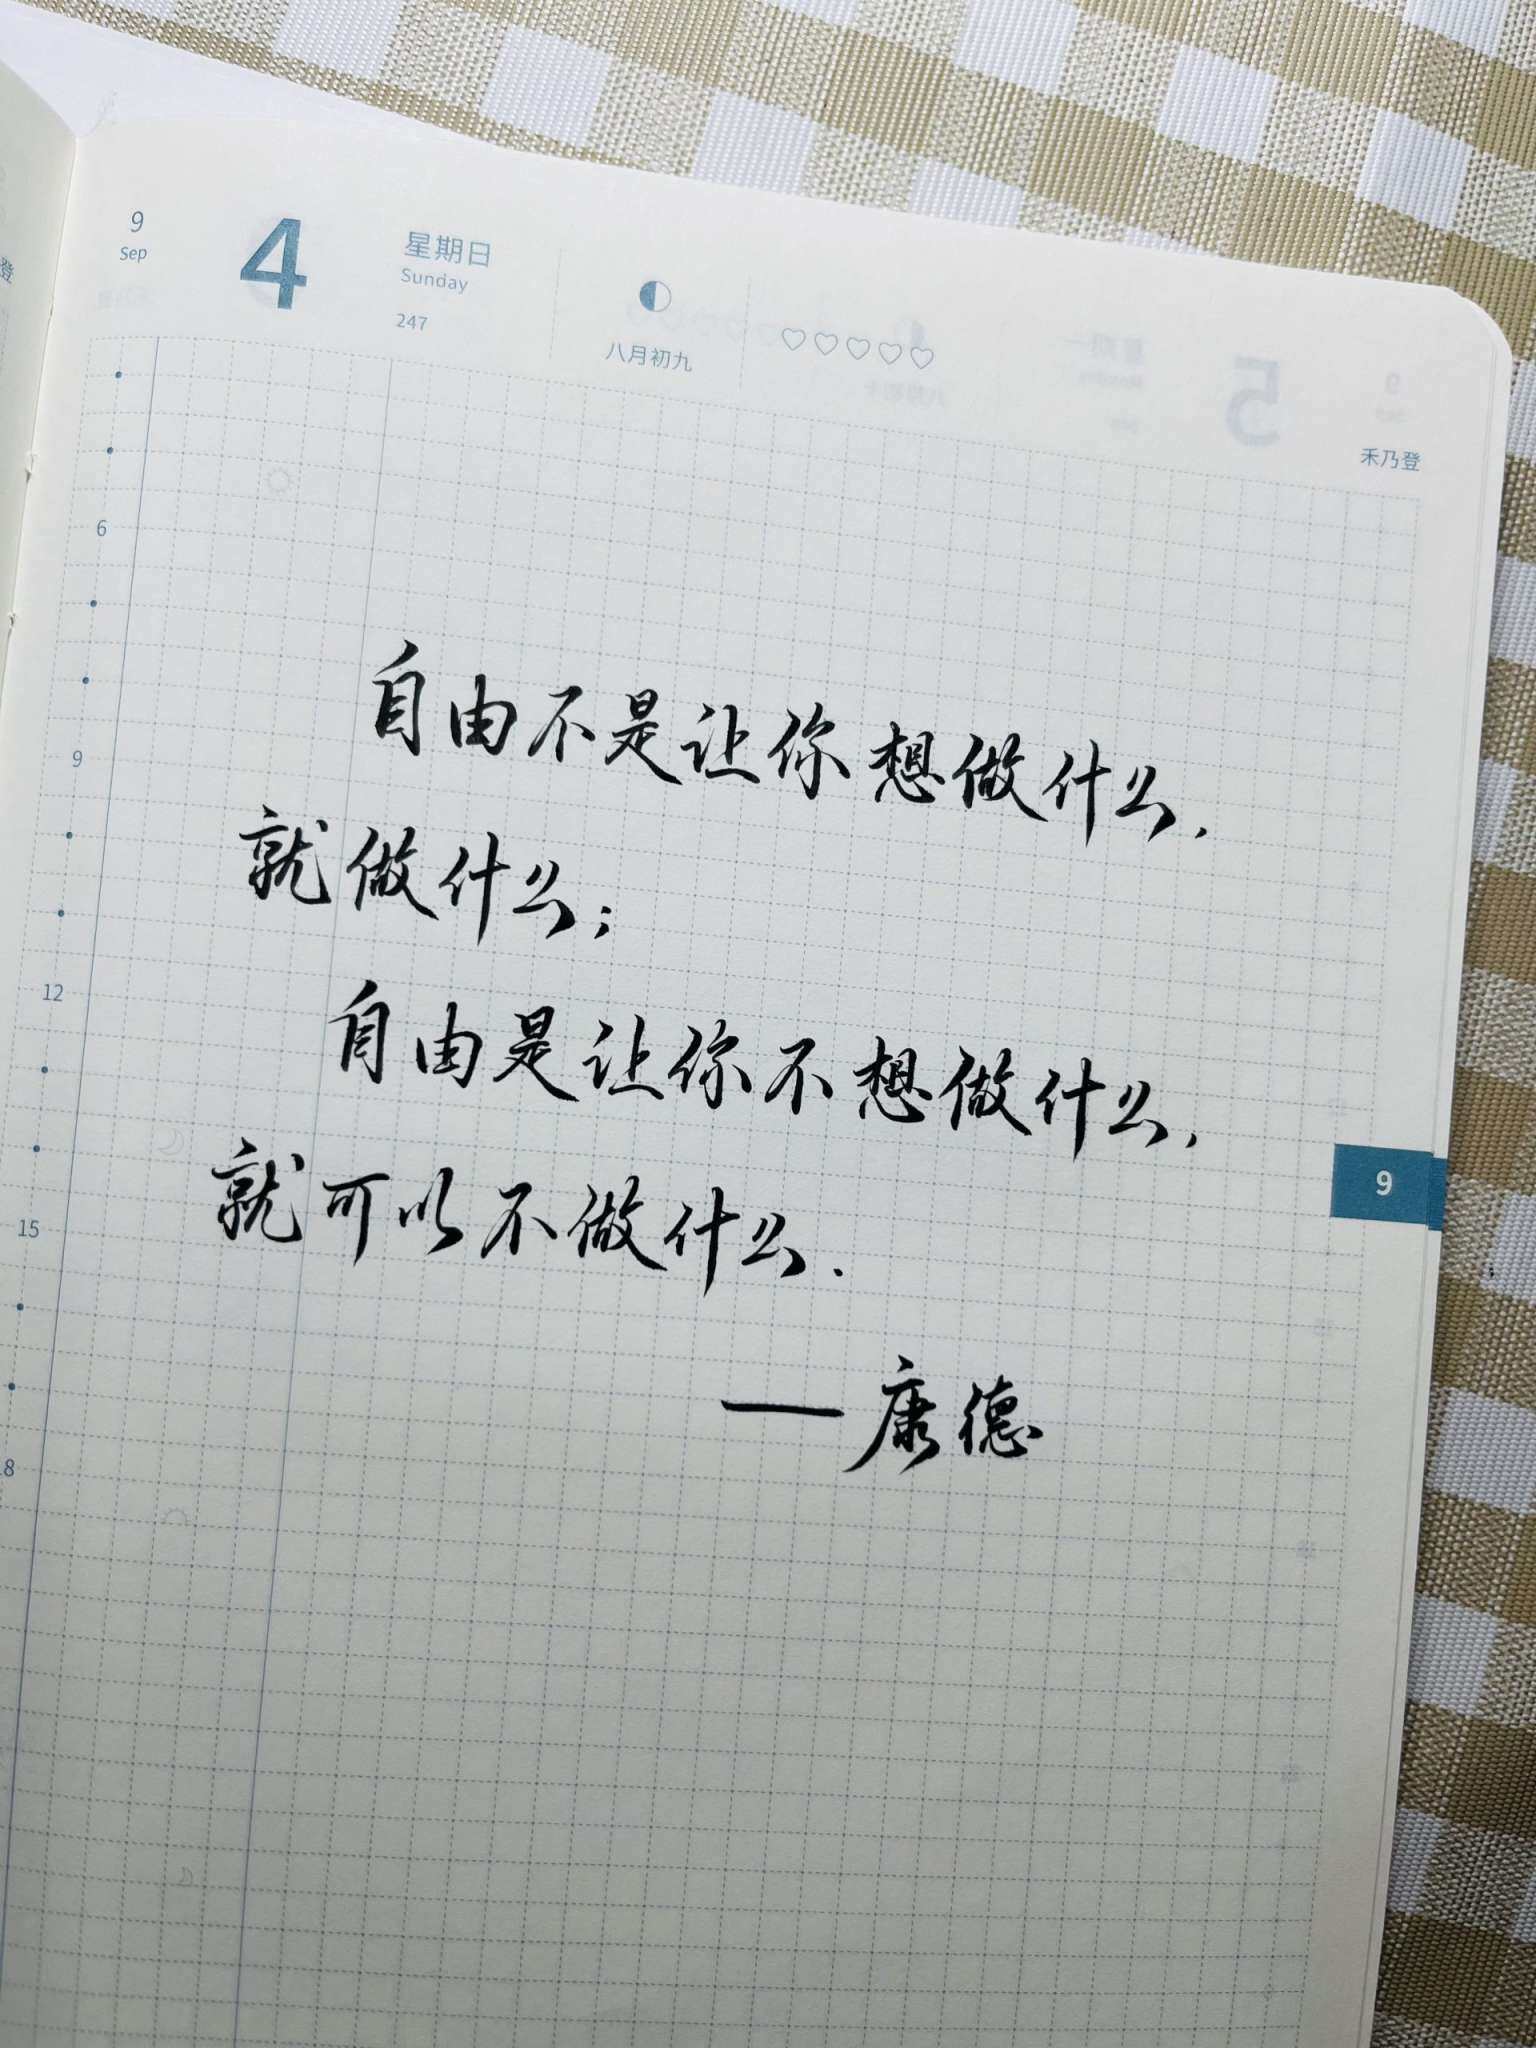 9
Sep
4
星期日
Sunday
247
八月初九
禾乃登
6
9
12
15
18
自由不是让你想做什么,
就做什么;
自由是让你不想做什么,
就可以不做什么.
—康德
9
登